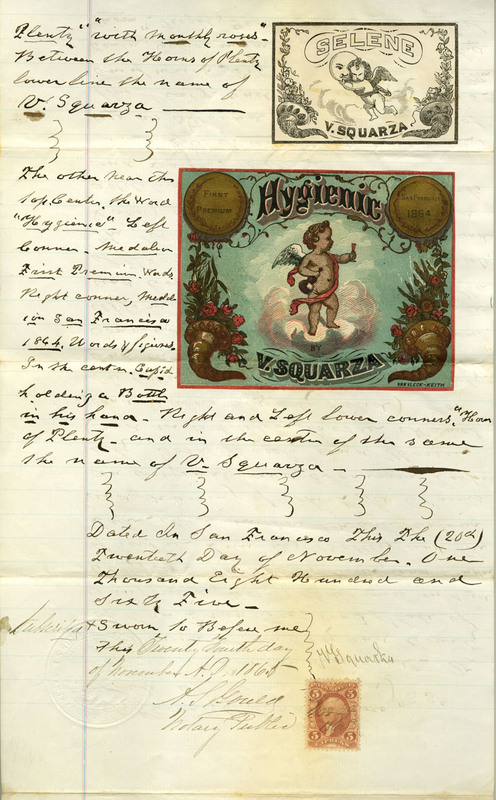 Plenty" "with monthly roses"-
Between the Horns of Plenty
lower line the name of
V. Squarza
SELENE
V. SQUARZA
The other near the
top Center, the Word
"Hygienic" Left
Conner - Medalion
First Premium, Words
Right conner, Medal
ion San Francisco
1864, Words & figures.
In the center, Cupid
holding a Bottle
FIRST
PREMIUM
Hygienic
SAN FRANCISCO
1864
BY
V. SQUARZA
VAN VLECK-KEITH
in his hand - Right and Left lower conners, "Horn
of Plenty - and in the center of the same
the name of V. Squarza -
Dated In San Francisco This The (20th)
Twentieth Day of November. One
Thousand Eight Hundred and
Sixty Five -
& Sworn to Before me
this Twenty fourth day
of November A.D. 1865
V. Squarza
A. S. Gould
Notary Public
5 5